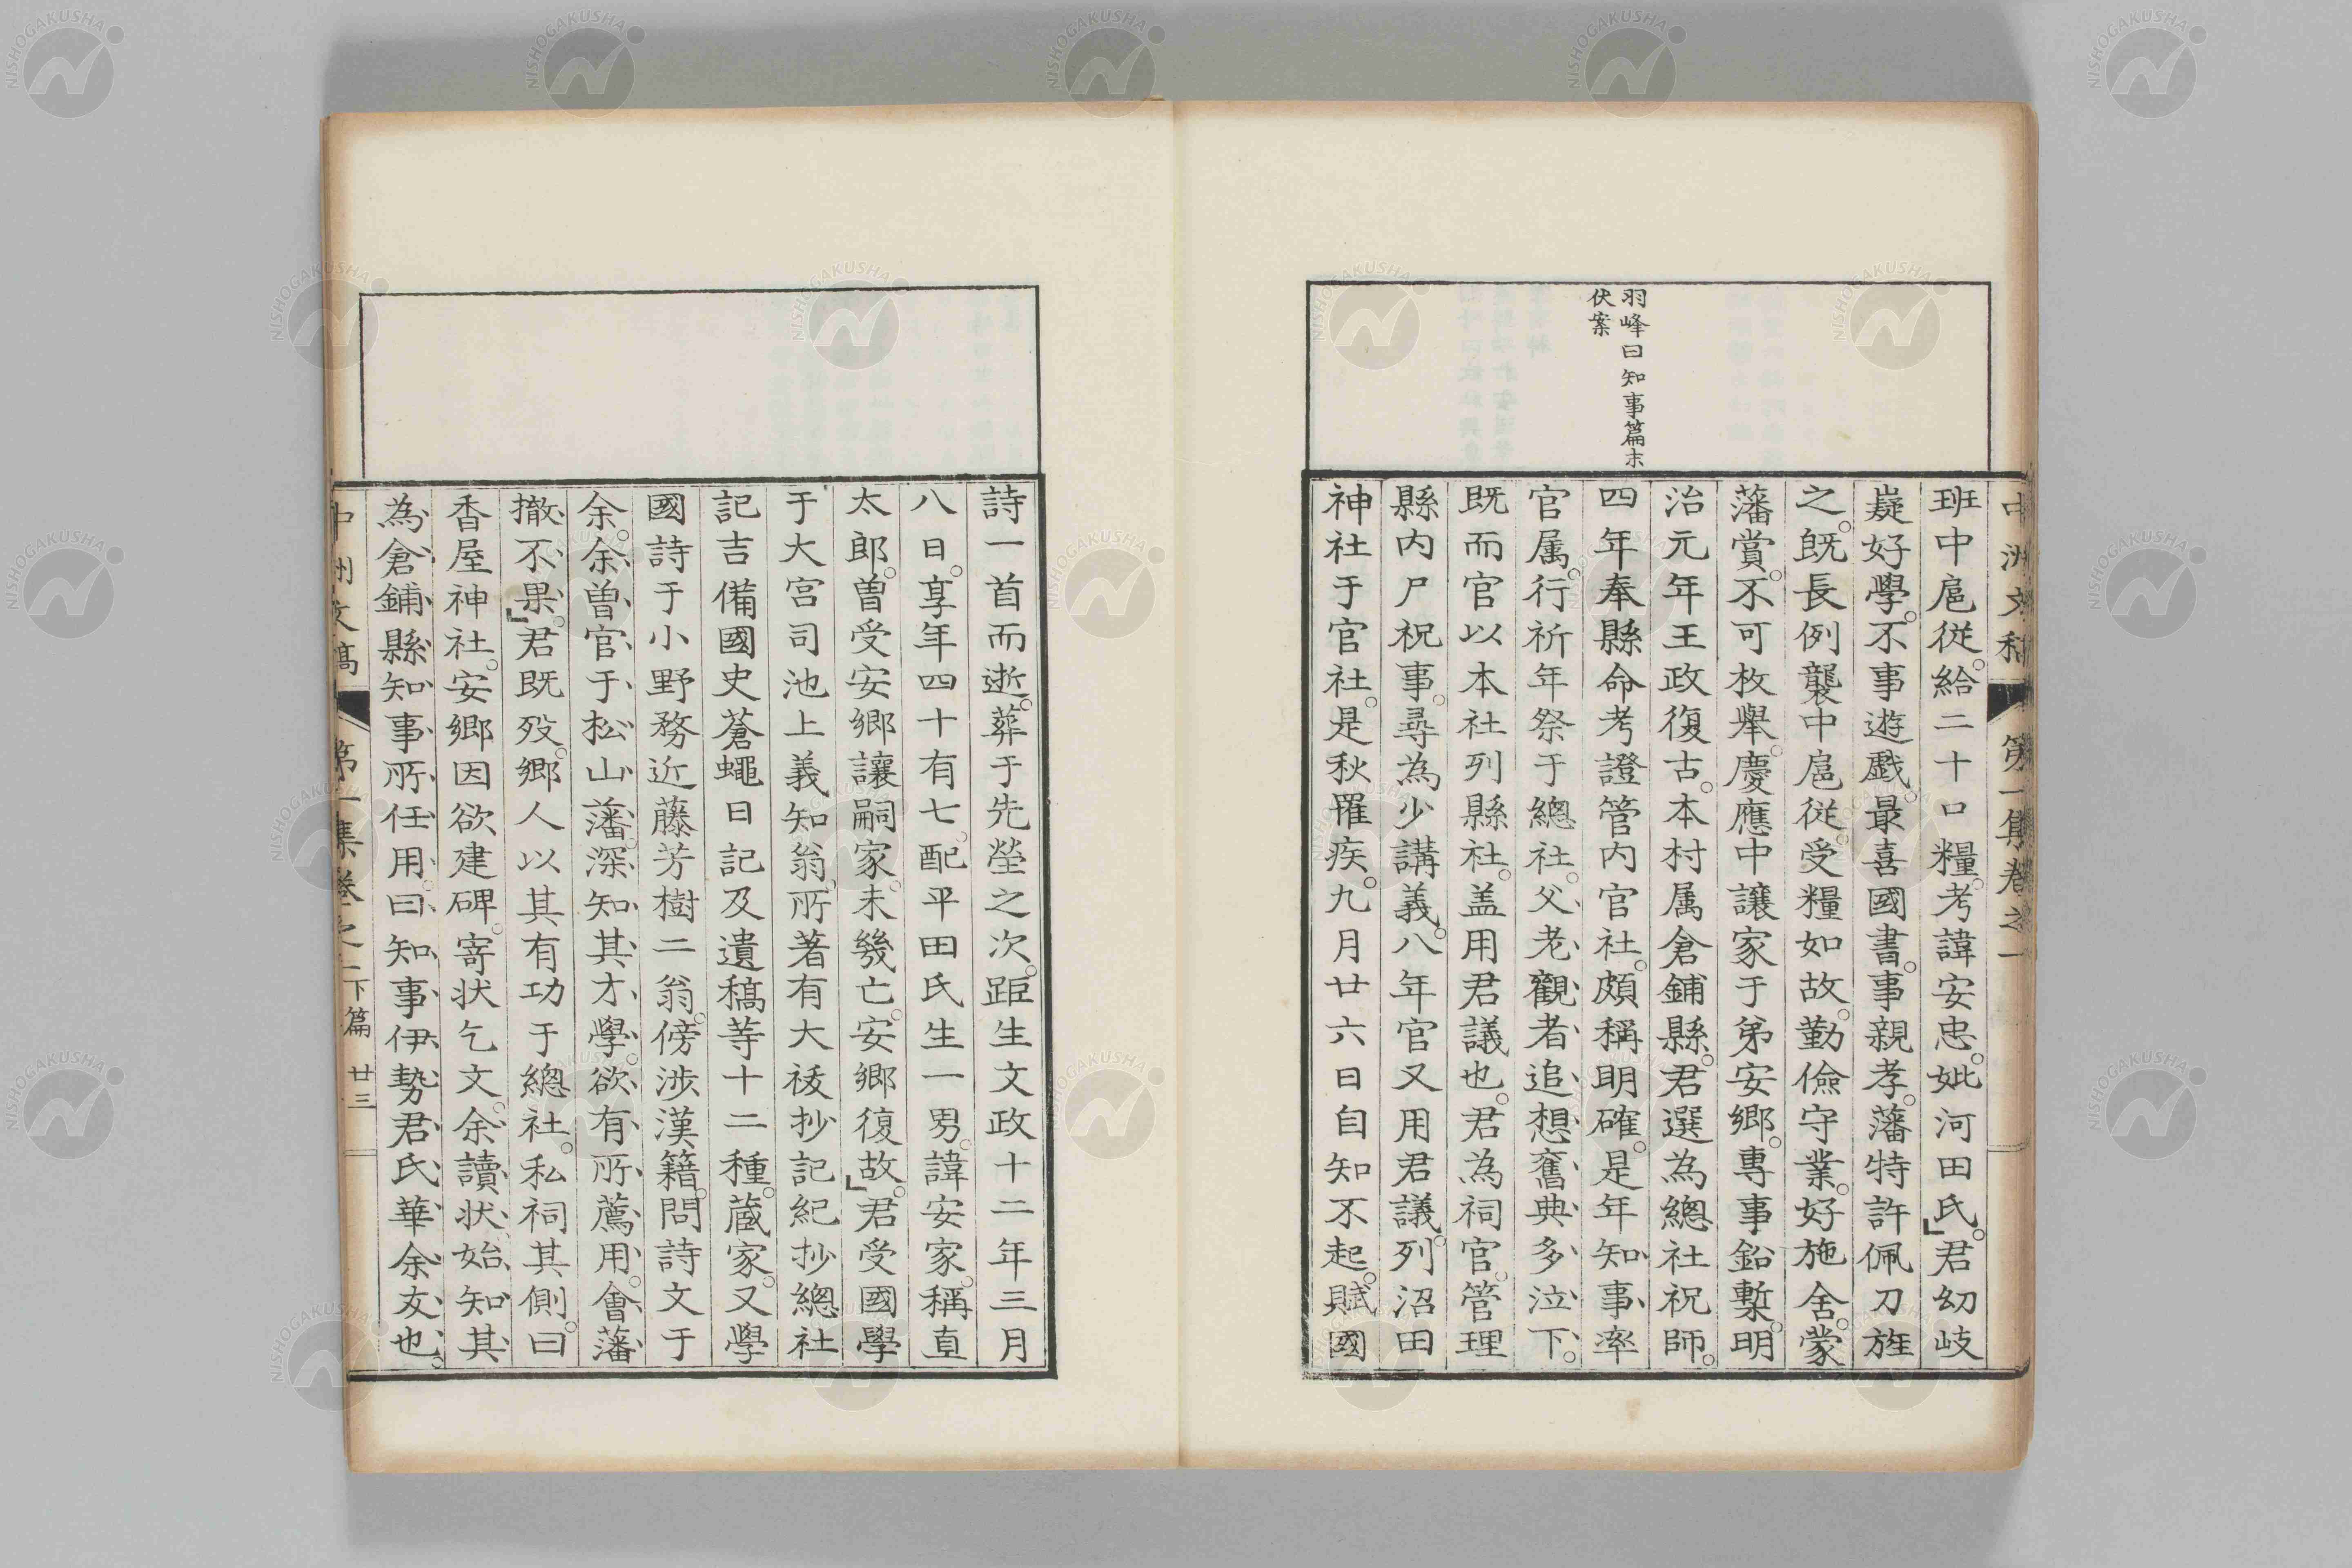 中洲文稿 第一集卷之一
羽峰曰知事篇末
伏案
班中扈從。給二十口糧。考諱安忠。妣河田氏。君幼岐
嶷好學。不事遊戲。最喜國書。事親孝。藩特許佩刀旌
之。既長例襲中扈從。受糧如故。勤儉守業。好施舍。蒙
藩賞。不可枚擧。慶應中讓家于弟安鄉。專事鉛槧。明
治元年王政復古。本村属倉鋪縣。君選為總社祝師。
四年奉縣命考證管内官社。頗稱明確。是年知事率
官属。行祈年祭于總社。父老觀者追想舊典多泣下。
既而官以本社列縣社。盖用君議也。君為祠官。管理
縣内尸祝事。尋為少講義。八年官又用君議。列沼田
神社于官社。是秋罹疾。九月廿六日自知不起。賦國
詩一首而逝。葬于先塋之次。距生文政十二年三月
八日。享年四十有七。配平田氏生一男。諱安家。稱直
太郎。曽受安鄉讓嗣家。未幾亡。安鄉復故。君受國學
于大宮司池上義知翁。所著有大祓抄記紀抄總社
記吉備國史蒼蠅日記及遺稿等十二種。蔵家。又學
國詩于小野務近藤芳樹二翁。傍涉漢籍。問詩文于
余。余曽官于松山藩。深知其才學。欲有所薦用。會藩
撤不果。君既歿。鄉人以其有功于總社。私祠其側。曰
香屋神社。安鄉因欲建碑。寄状乞文。余讀状始知其
為倉鋪縣知事所任用。曰知事伊勢君氏華余友也。
中洲文稿 第一集卷之一 下篇 廿三